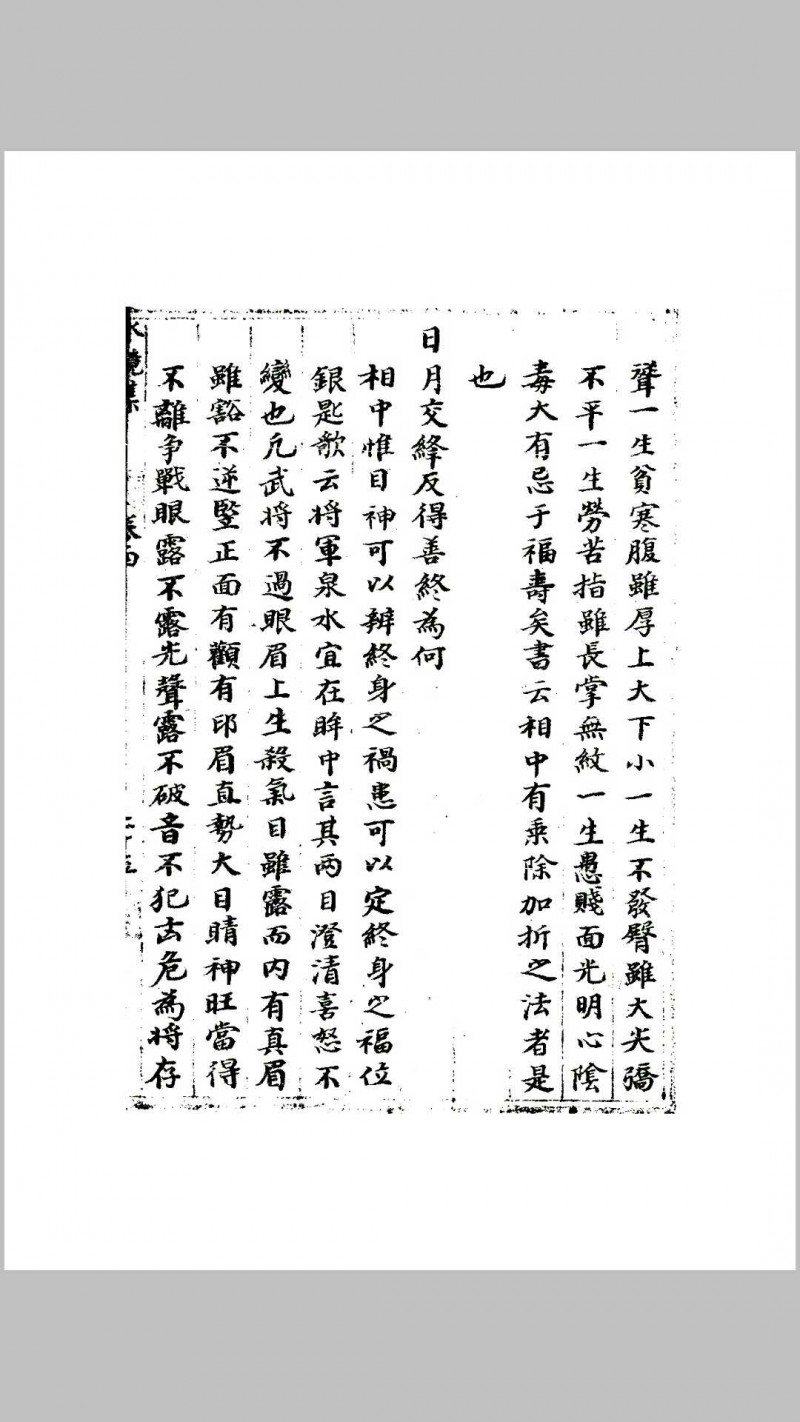 聳一生貧寒腹雖厚上大下小一生不發臀雖大尖矯
不平一生勞苦指雖長掌無紋一生愚賤面光明心陰
毒大有忌于福壽矣書云相中有乘除加折之法者是
也
日月交絳反得善終為何
相中惟目神可以辨終身之禍患可以定終身之福位
銀匙歌云將軍泉水宜在眸中言其兩目澄清喜怒不
變也凡武將不過眼眉上生殺氣目雖露而內有真眉
雖豁不逆竪正面有顴有印眉直勢大目睛神旺當得
不離爭戰眼露不露光聲露不破音不犯古危為將存
水鏡集 卷四